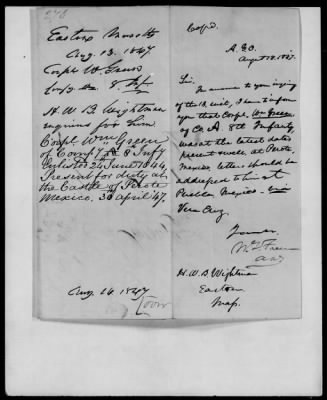 Eastern Massts
Aug. 13. 1847
Corpl W. Green
Co. A. 8. Inf
H. W. B. Wightman
inquires for him
Corpl. Wm Green
of Comp. A 8 Infy
Enlisted 25 June 1844,
Present for duty at
the Castle of Perote
Mexico. 30 April '47.
Aug. 26. 1847
Cop'd.
A. G. O.
August 18. 1847.
Sir.
In answer to your inquiry
of the 13 inst, I have to inform
you that Corpl. Wm Green
of Co. A 8th Infantry,
was at the latest dates
present & well at Perote,
Mexico, letters should be
addressed to him at
Puebla Mexico - via
Vera Cruz
H. W. B. Wightman
Eastern
Mass.